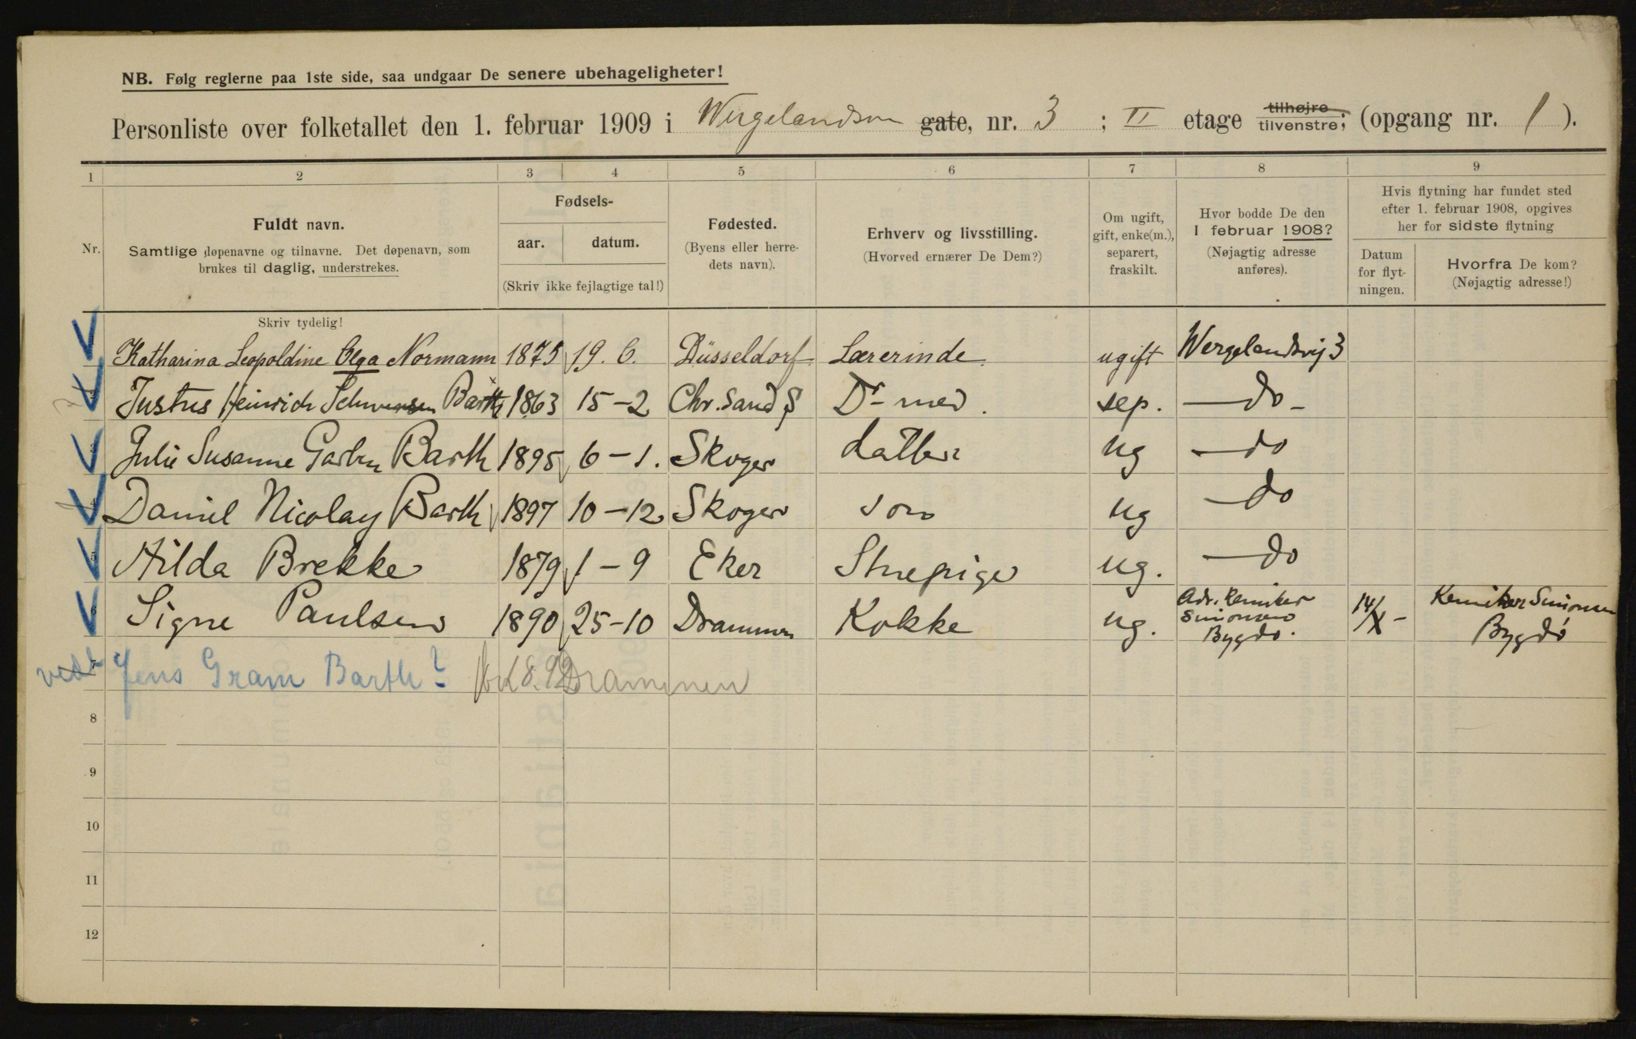 NB. Følg reglerne paa 1ste side, saa undgaar De senere ubehageligheter!
Personliste over folketallet den 1. februar 1909 i Wergelandsv gate, nr. 3 ; II etage tilhøjre tilvenstre; (opgang nr. 1 ).
1 2 3 4 5 6 7 8 9
Nr.
Fuldt navn.
Samtlige døpenavne og tilnavne. Det døpenavn, som
brukes til daglig, understrekes.
Fødsels-
aar. datum.
(Skriv ikke fejlagtige tal!)
Fødested.
(Byens eller herre-
dets navn).
Erhverv og livsstilling.
(Hvorved ernærer De Dem?)
Om ugift,
gift, enke(m.),
separert,
fraskilt.
Hvor bodde De den
1 februar 1908?
(Nøjagtig adresse
anføres).
Hvis flytning har fundet sted
efter 1. februar 1908, opgives
her for sidste flytning
Datum
for flyt-
ningen.
Hvorfra De kom?
(Nøjagtig adresse!)
Skriv tydelig!
Katharina Leopoldine Olga Normann 1875 19. 6. Düsseldorf Lærerinde ugift Wergelandsvj 3
Justus Heinrich Barth 1863 15-2 Chr. Sand S Dr med. sep. — do —
Julie Susanne Barth 1895 6-1. Skoger datter ug — do
Daniel Nicolay Barth 1897 10-12 Skoger søn ug — do
Hilda Brekke 1879 1-9 Eker Stuepige ug. — do
Signe Paulsen 1890 25-10 Drammen Kokke ug. Adr. Kemiker Simonsen Bygdø. 14/X - Kemiker Simonsen Bygdø
Jens Gram Barth? 8. 92 Drammen
8
9
10
11
12